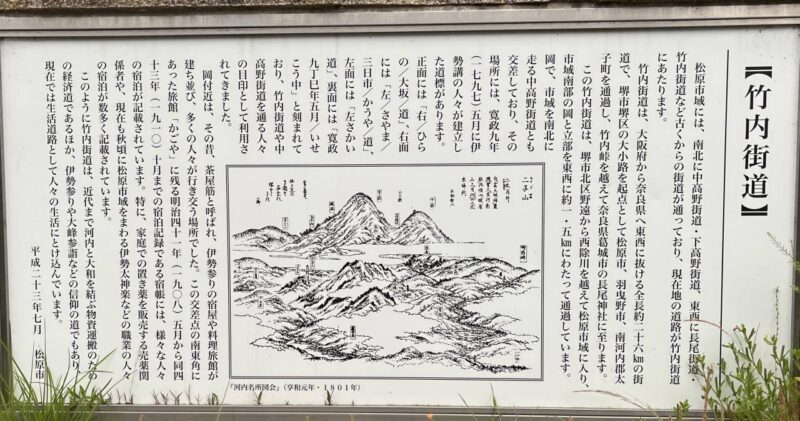 【竹内街道】
松原市域には、南北に中高野街道・下高野街道、東西に長尾街道・
竹内街道など古くからの街道が通っており、現在地の道路が竹内街道
にあたります。
竹内街道は、大阪府から奈良県へ東西に抜ける全長約二十六㎞の街
道で、堺市堺区の大小路を起点として松原市、羽曳野市、南河内郡太
子町を通過し、竹内峠を越えて奈良県葛城市の長尾神社に至ります。
この竹内街道は、堺市北区野遠から西除川を越えて松原市域に入り、
市域南部の岡と立部を東西に約一・五㎞にわたって通過しています。
岡で、市域を南北に
走る中高野街道とも
交差しており、その
場所には、寛政九年
（一七九七）五月に伊
勢講の人々が建立し
た道標があります。
正面には「右／ひら
の／大坂／道」、右面
には「左／さやま／
三日市／かうや／道」、
左面には「左さかい
道」、裏面には「寛政
九丁巳年五月／いせ
こう中」と刻まれて
おり、竹内街道や中
高野街道を通る人々
の目印として利用さ
れてきました。
岡付近は、その昔、茶屋筋と呼ばれ、伊勢参りの宿屋や料理旅館が
建ち並び、多くの人々が行き交う場所でした。この交差点の南東角に
あった旅館「かごや」に残る明治四十一年（一九〇八）五月から同四
十三年（一九一〇）十月までの宿泊記録である宿帳には、様々な人々
の宿泊が記載されています。特に、家庭での置き薬を販売する売薬関
係者や、現在も秋頃に松原市域をまわる伊勢太神楽などの職業の人々
の宿泊が数多く記載されています。
このように竹内街道は、近代まで河内と大和を結ぶ物資運搬のため
の経済道であるほか、伊勢参りや大峰参詣などの信仰の道でもあり、
現在では生活道路として人々の生活にとけ込んでいます。
平成二十三年七月　松原市
二子山
『河内名所図会』（享和元年・1801年）